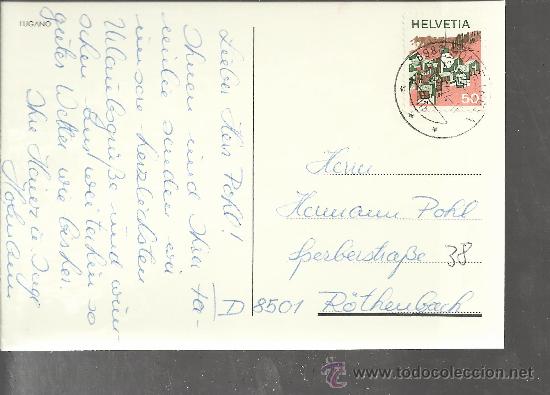 LUGANO
Lieber Herr Pohl!
Ihnen und Ihrer Fa-
milie senden wir
unsere herzlichsten
Urlaubsgrüße und wün-
schen
weiterhin so
gutes Wetter wie bisher.
Ihre
HELVETIA
50
Herrn
Hermann Pohl
Sperberstraße 38
D 8501 Röthenbach
www.todocoleccion.net